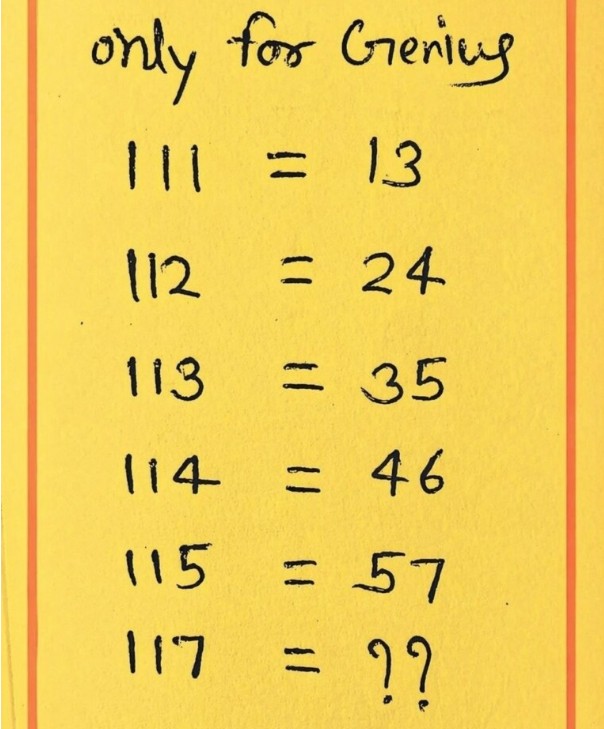 only for Genius
111 = 13
112 = 24
113 = 35
114 = 46
115 = 57
117 = ??